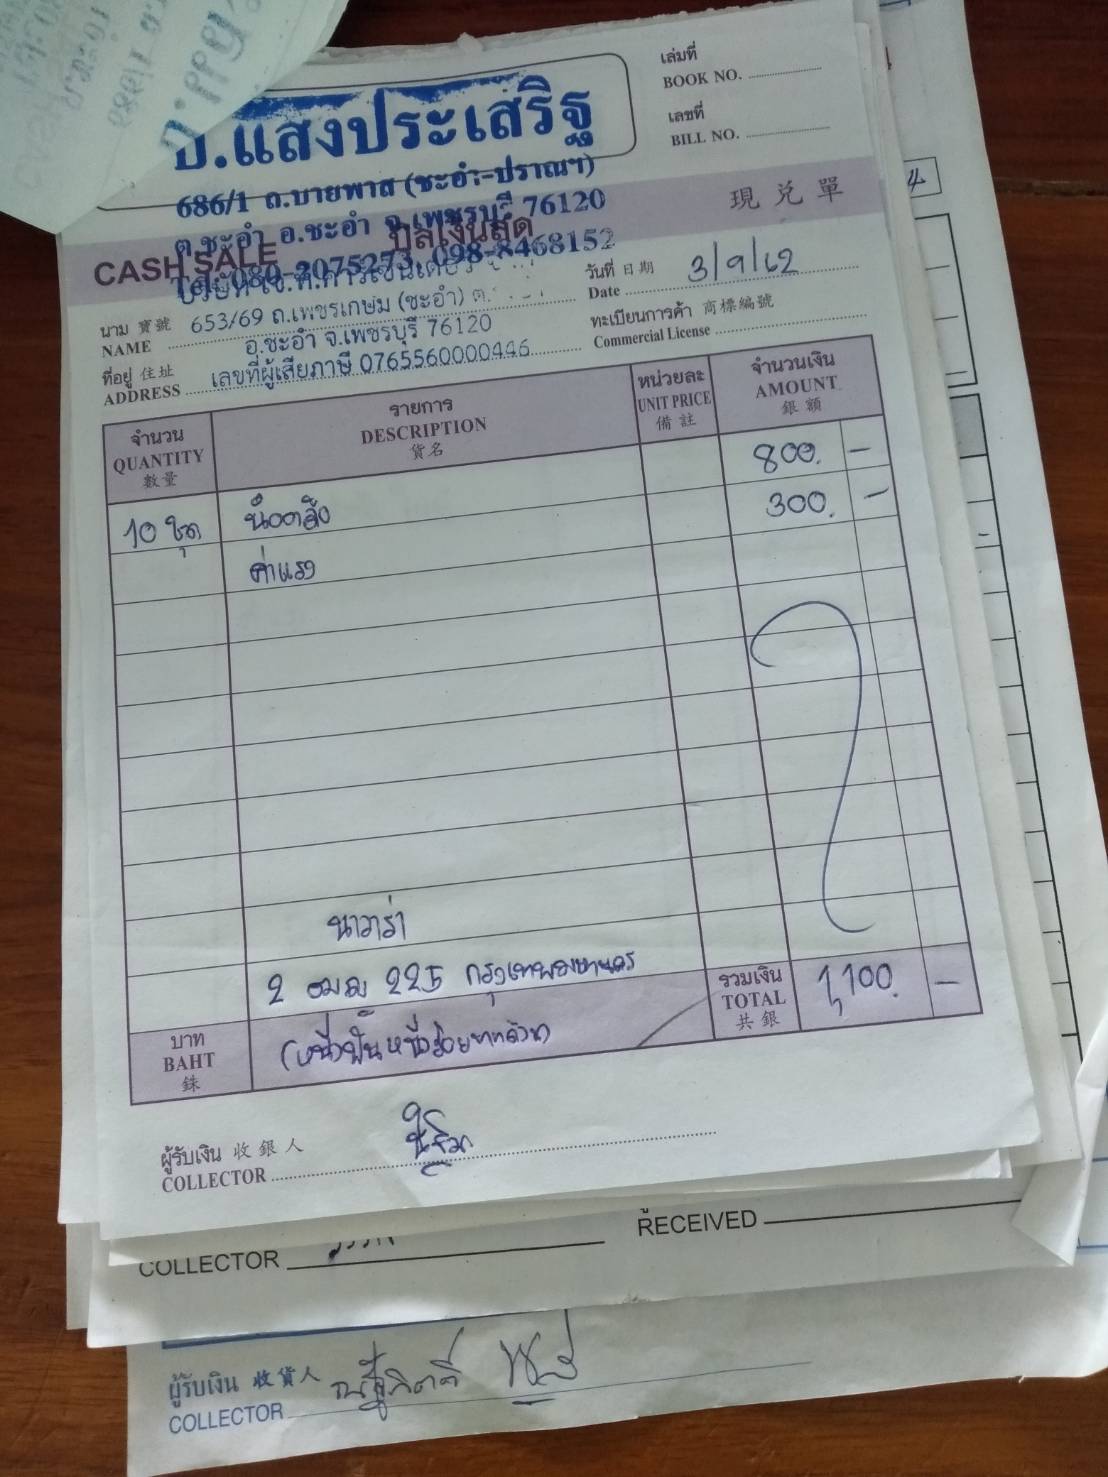 อ.แสงประเสริฐ
686/1 ถ.บายพาส (ชะอำ-ปราณฯ)
ต.ชะอำ อ.ชะอำ จ.เพชรบุรี 76120
Tel. 080-2075273, 098-8468152
เล่มที่
BOOK NO.
เลขที่
BILL NO.
現兌單
CASH SALE
บิลเงินสด
วันที่ 日期 3/9/62
Date
นาม 寶號
NAME
653/69 ถ.เพชรเกษม (ชะอำ) ต.
อ.ชะอำ จ.เพชรบุรี 76120
ทะเบียนการค้า 商標編號
Commercial License
ที่อยู่ 住址
ADDRESS
เลขที่ผู้เสียภาษี 0765560000446
จำนวน
QUANTITY
數量
รายการ
DESCRIPTION
貨名
หน่วยละ
UNIT PRICE
備註
จำนวนเงิน
AMOUNT
銀額
10 ชุด น็อตล้อ 800. -
ค่าแรง 300. -
นาวาร่า
2 ฒฌ 225 กรุงเทพมหานคร
บาท
BAHT
銖
(หนึ่งพันหนึ่งร้อยบาทถ้วน)
รวมเงิน
TOTAL
共銀
1,100. -
ผู้รับเงิน 收銀人
COLLECTOR
COLLECTOR
RECEIVED
ผู้รับเงิน 收貨人
COLLECTOR